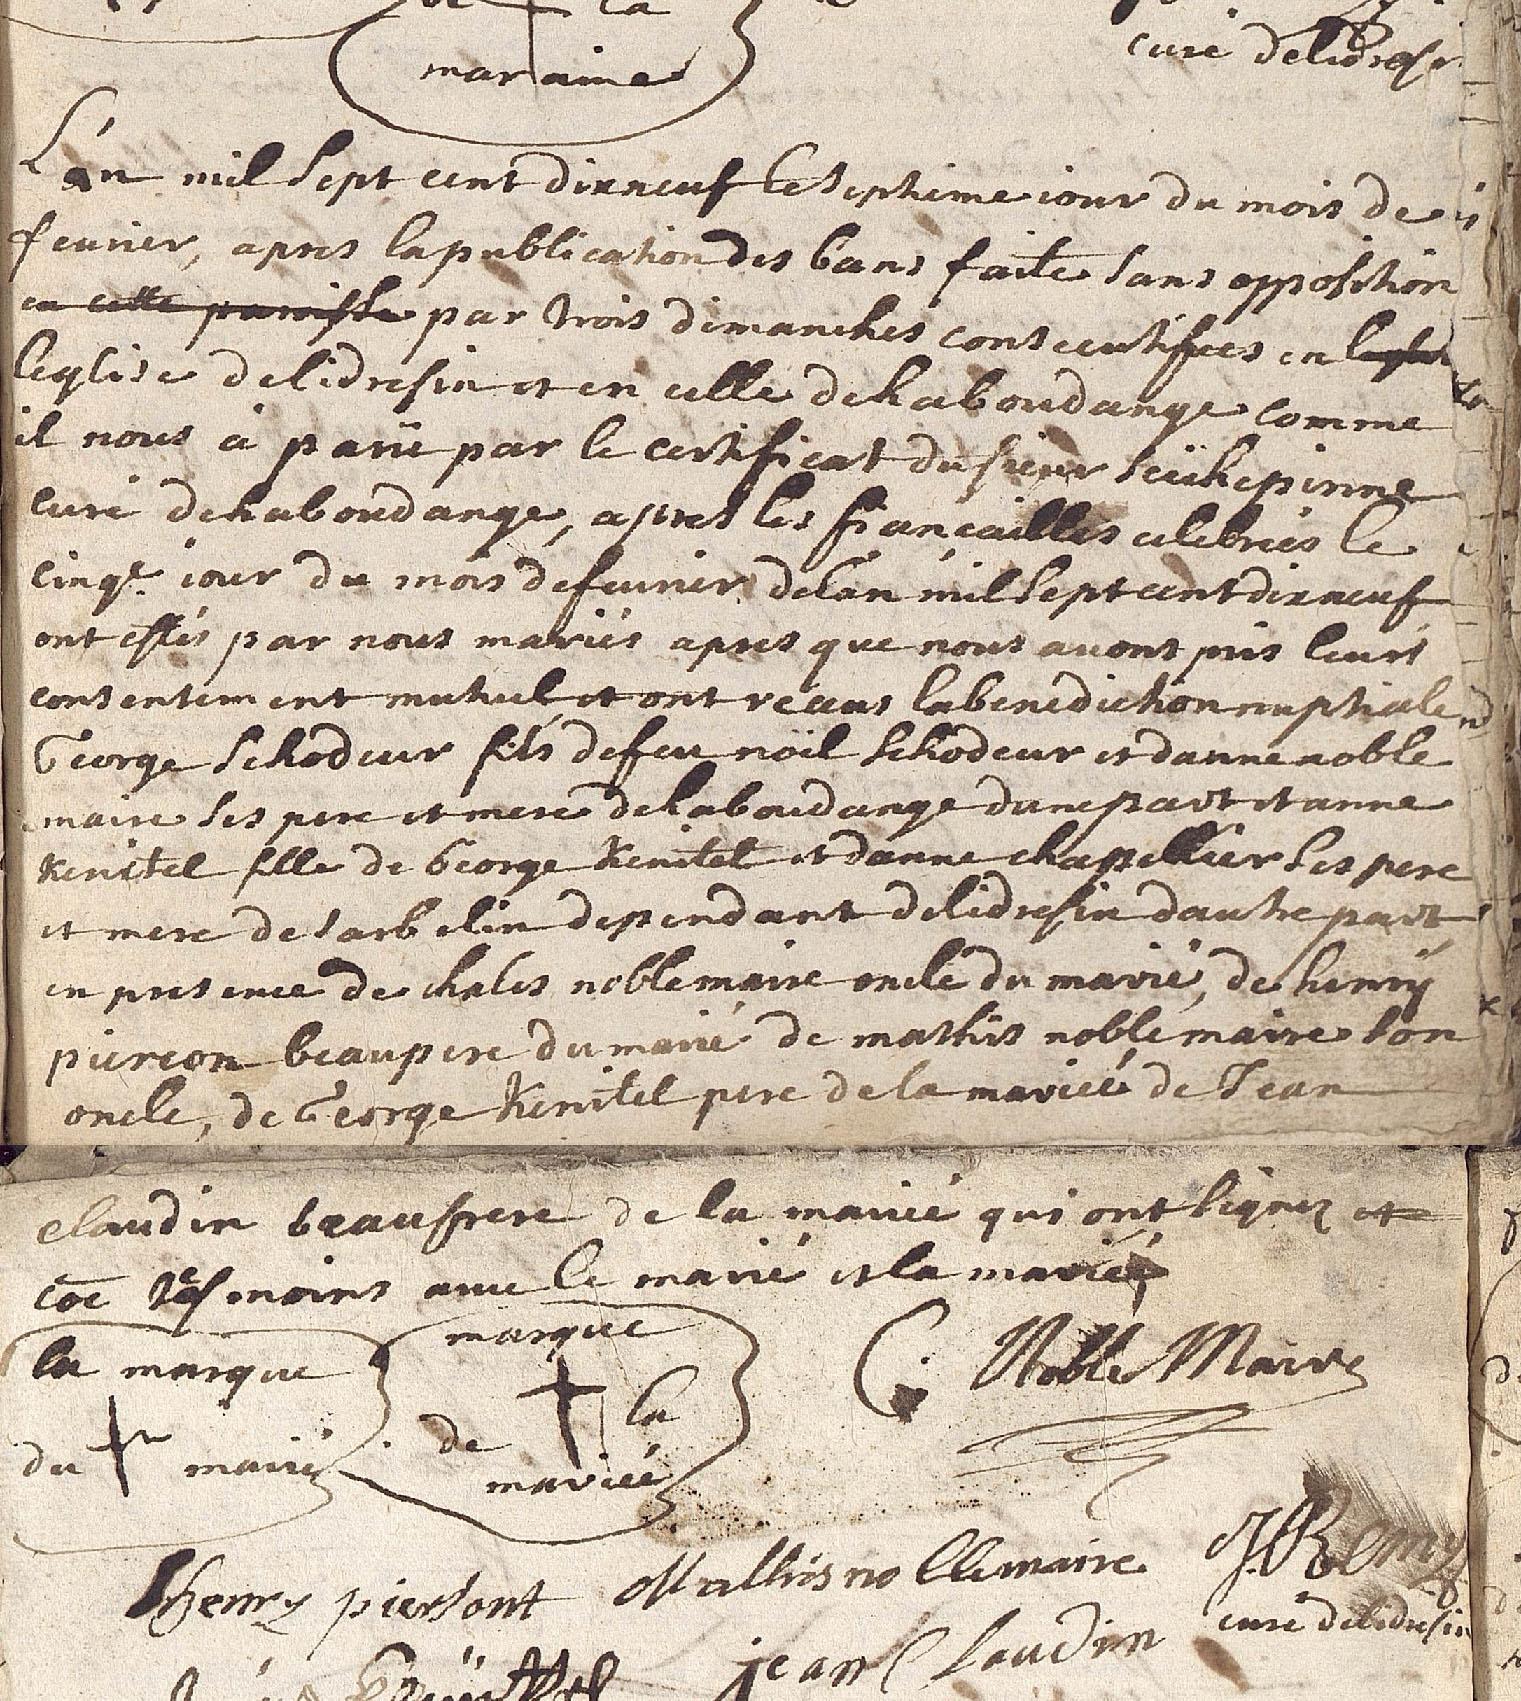 de la
maraine
curé delidresin
L'an mil sept cent dixneuf le septieme iour du mois de
feurier, apres lapublication des bans faite sans opposition
en cette paroisse par trois dimanches consecutifues en
leglise delidresin et en celle dehaboudange comme
il nous à parü par le certificat du sieur
curé dehaboudange, apres les fiançailles celebreés le
cinqe. iour du mois defeurier delan mil sept cent dixneuf
ont estés par nous mariés apres que nous auons pris leurs
consentement mutuel et ont receus labenediction nuptiale
George schodeur fils defeu noël schodeur et danne noble
maire ses pere et mere dehaboudange dunepart et anne
Kenitel fille de George Kenitel et danne chappellier ses pere
et mere desarbelin dependant delidresin dautre part
en presence de chales noblemaire oncle du marié, de henrÿ
pierson beaupere du marié de mathis noblemaire son
oncle, de George Kenitel pere de la marieé de Jean
claudin beaufrere de la marieé qui ont signez et
coe tesmoins auec le marié et la marieé
la marque
du marié
marque
de la
marieé
C. Noble Maire
henry piersont
Mathis noblemaire
J. Remy
curé delidresin
jean Claudin